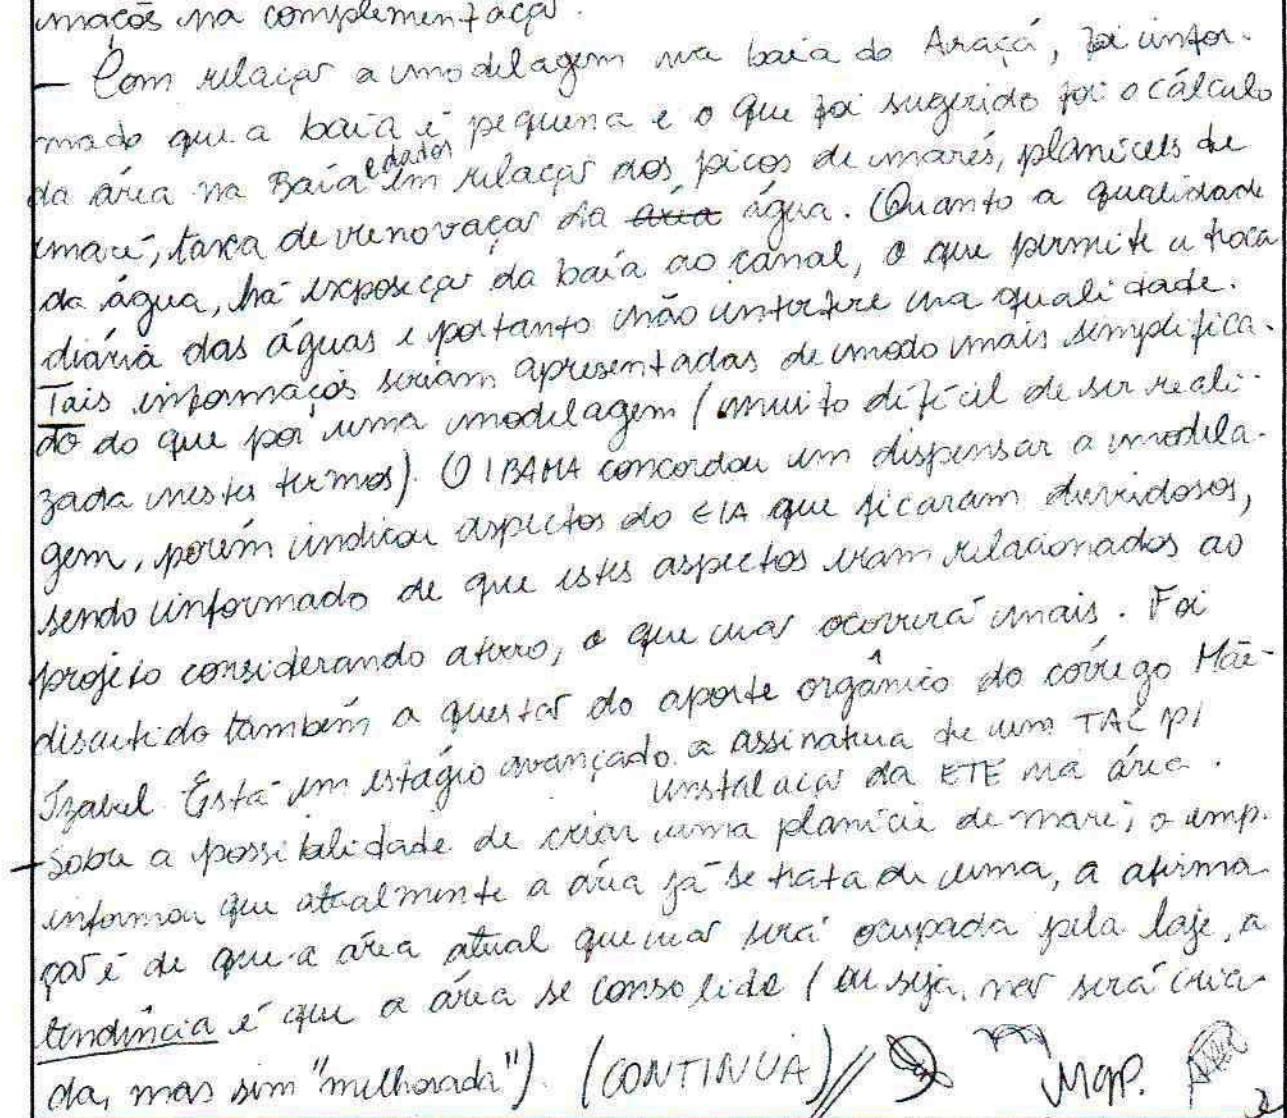 mações na complementação.
- Com relação a modelagem na baia do Araçá, foi infor-
mado que a baia é pequena e o que foi sugerido foi o cálculo
da área na Baía e dados em relação aos picos de marés, planícies de
maré, taxa de renovação da área água. Quanto a qualidade
da água, há exposição da baía ao canal, o que permite a troca
diária das águas e portanto não interfere na qualidade.
Tais informações seriam apresentadas de modo mais simplifica-
do do que por uma modelagem (muito difícil de ser reali-
zada nestes termos). O IBAMA concordou em dispensar a modela-
gem, porém indicou aspectos do EIA que ficaram duvidosos,
sendo informado de que estes aspectos eram relacionados ao
projeto considerando aterro, o que não ocorrerá mais. Foi
discutido também a questão do aporte orgânico do córrego Mãe-
Izabel. Está em estágio avançado a assinatura de um TAC p/
instalação da ETE na área.
- Sobre a possibilidade de criar uma planície de maré, o emp.
informou que atualmente a área já se trata de uma, a afirma
ção é de que a área atual que não será ocupada pela laje, a
tendência é que a área se consolide (ou seja, não será cria-
da, mas sim "melhorada"). (CONTINUA)//